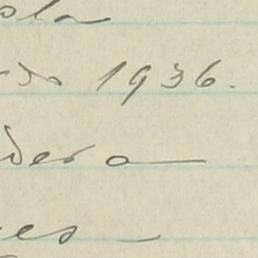 ola
do 1936.
dera
es